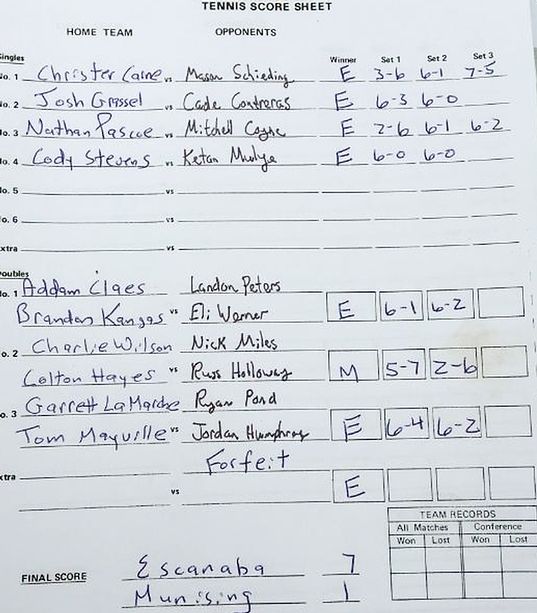 TENNIS SCORE SHEET
HOME TEAM OPPONENTS
Singles Winner Set 1 Set 2 Set 3
No. 1 Christer Caine vs Mason Schieding E 3-6 6-1 7-5
No. 2 Josh Grassel vs Cade Contreras E 6-3 6-0
No. 3 Nathan Pascoe vs Mitchell Coyne E 2-6 6-1 6-2
No. 4 Cody Stevens vs Ketan Mudge E 6-0 6-0
No. 5 vs
No. 6 vs
xtra vs
Doubles
No. 1 Addam Claes Landon Peters
Brandon Kangas vs Eli Werner E 6-1 6-2
o. 2 Charlie Wilson Nick Miles
Colton Hayes vs Russ Holloway M 5-7 2-6
o. 3 Garrett LaMarche Ryan Pond
Tom Mayville vs Jordan Humphrey E 6-4 6-2
xtra Forfeit
vs E
TEAM RECORDS
All Matches Conference
Won Lost Won Lost
FINAL SCORE Escanaba 7
Munising 1